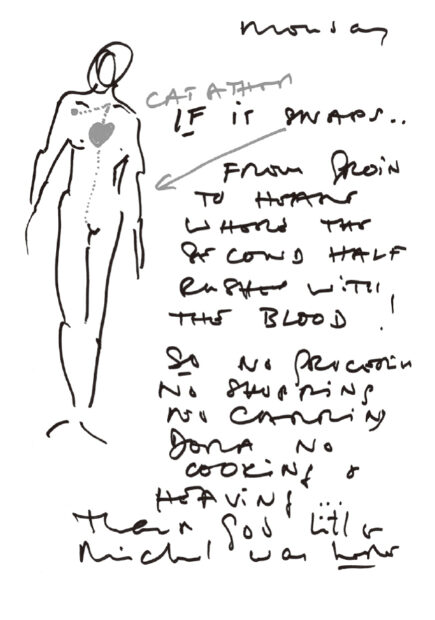 Monday
IF IT SNAPS..
FROM GROIN
TO HEART
WHERE THE
SECOND HALF
RUSHES WITH
THE BLOOD!
SO NO
NO SHOPPING
NO CARRYING
DORA NO
COOKING &
HEAVING ...
Thank god little
Michel was